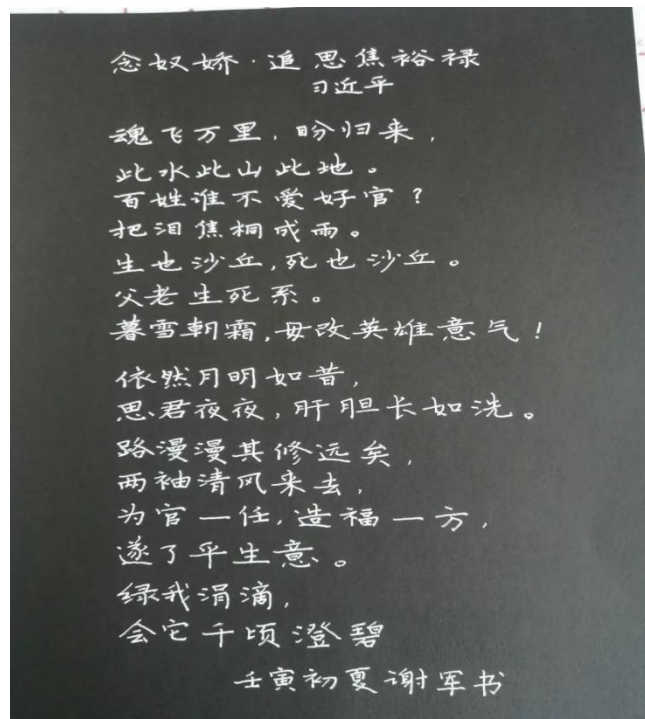 念奴娇·追思焦裕禄
习近平
魂飞万里,盼归来,
此水此山此地。
百姓谁不爱好官?
把泪焦桐成雨。
生也沙丘,死也沙丘。
父老生死系。
暮雪朝霜,毋改英雄意气!
依然月明如昔,
思君夜夜,肝胆长如洗。
路漫漫其修远矣,
两袖清风来去,
为官一任,造福一方,
遂了平生意。
绿我涓滴,
会它千顷澄碧
壬寅初夏谢军书